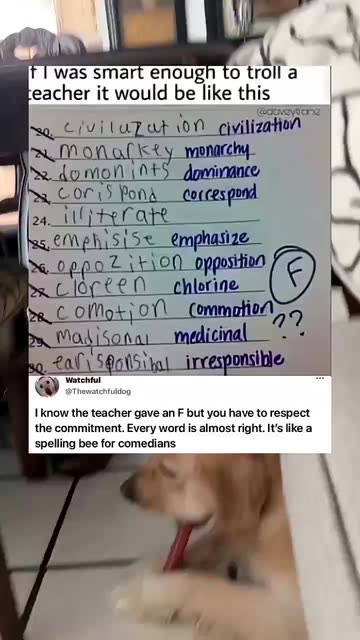 f I was smart enough to troll a
teacher it would be like this
@daveytranz
20. civilazation civilization
21. monarkey monarchy
22. domonints dominance
23. corispond correspond
24. illiterate
25. emphisise emphasize
26. oppozition opposition
27. cloreen chlorine
F
28. comotion commotion
29. madisonal medicinal
??
30. earisponsibal irresponsible
Watchful
@Thewatchfuldog
I know the teacher gave an F but you have to respect
the commitment. Every word is almost right. It's like a
spelling bee for comedians